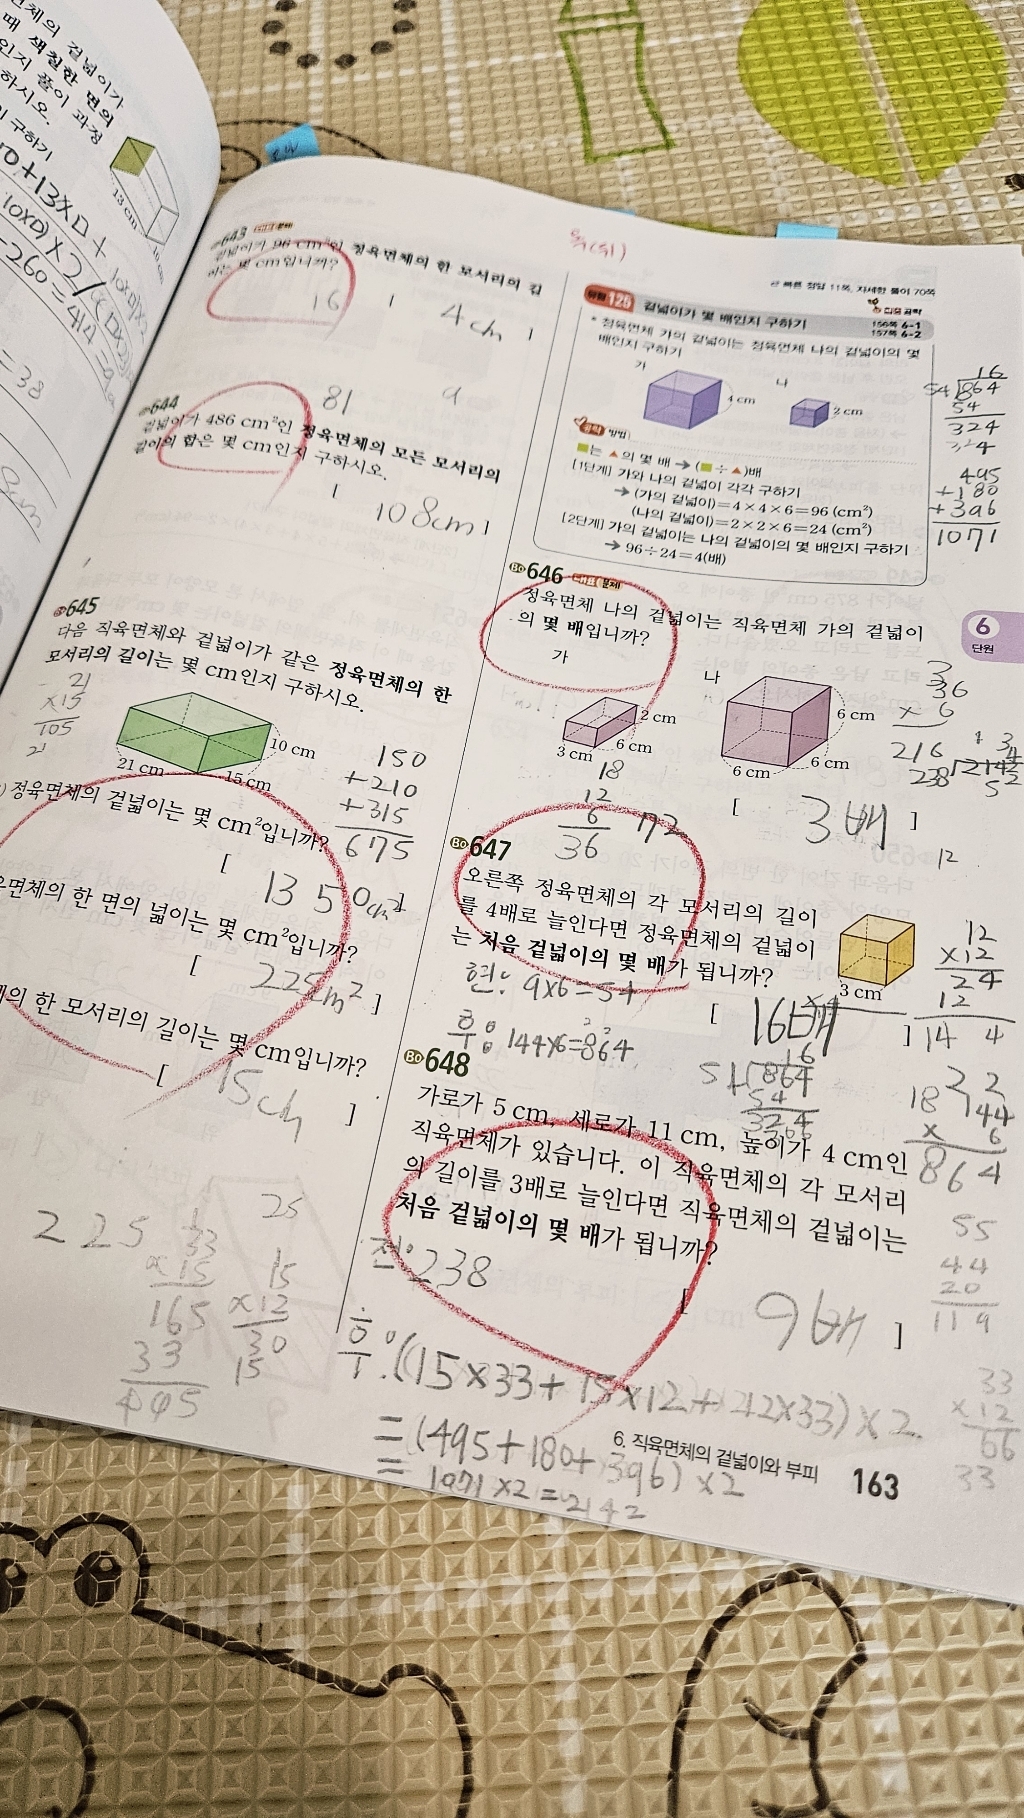 체의 겉넓이가
때 색칠한 면의
인지 풀이 과정
하시오.
구하기
13 cm
= 38
643 대표문제
겉넓이가 96 cm²인 정육면체의 한 모서리의 길
이는 몇 cm입니까?
16
[ 4cm ]
644
81 9
겉넓이가 486 cm²인 정육면체의 모든 모서리의
길이의 합은 몇 cm인지 구하시오.
[ 108cm ]
645
다음 직육면체와 겉넓이가 같은 정육면체의 한
모서리의 길이는 몇 cm인지 구하시오.
21
×15
105
10 cm
21 cm
15 cm
150
+210
+315
675
정육면체의 겉넓이는 몇 cm²입니까?
[ 1350cm² ]
면체의 한 면의 넓이는 몇 cm²입니까?
[ 225cm² ]
의 한 모서리의 길이는 몇 cm입니까?
[ 15cm ]
225
33
×15
165
33
495
25
15
×12
30
15
빠른 정답 11쪽, 자세한 풀이 70쪽
유형 125 겉넓이가 몇 배인지 구하기
집중 공략
156쪽 6-1
157쪽 6-2
* 정육면체 가의 겉넓이는 정육면체 나의 겉넓이의 몇
배인지 구하기
가 나
4 cm 2 cm
공략 방법
■는 ▲의 몇 배 → (■÷▲)배
[1단계] 가와 나의 겉넓이 각각 구하기
→ (가의 겉넓이)=4×4×6=96 (cm²)
(나의 겉넓이)=2×2×6=24 (cm²)
[2단계] 가의 겉넓이는 나의 겉넓이의 몇 배인지 구하기
→ 96÷24=4(배)
16
54 864
54
324
324
495
+180
+396
1071
646 대표문제
정육면체 나의 겉넓이는 직육면체 가의 겉넓이
의 몇 배입니까?
가 나
2 cm
3 cm 6 cm
6 cm
6 cm 6 cm
18
12
6
36 72
[ 3배 ]
6
단원
3
36
× 6
216
238 2142
12
647
오른쪽 정육면체의 각 모서리의 길이
를 4배로 늘인다면 정육면체의 겉넓이
는 처음 겉넓이의 몇 배가 됩니까?
3 cm
현: 9×6=54
후: 144×6=864
[ 16배 ]
16
54 864
54
324
12
×12
24
12
144
144
× 6
864
648
가로가 5 cm, 세로가 11 cm, 높이가 4 cm인
직육면체가 있습니다. 이 직육면체의 각 모서리
의 길이를 3배로 늘인다면 직육면체의 겉넓이는
처음 겉넓이의 몇 배가 됩니까?
전: 238
[ 9배 ]
후: ((15×33+15×12+12×33)×2
=(495+180+396)×2
= 1071×2=2142
55
44
20
119
33
×12
66
33
6. 직육면체의 겉넓이와 부피 163